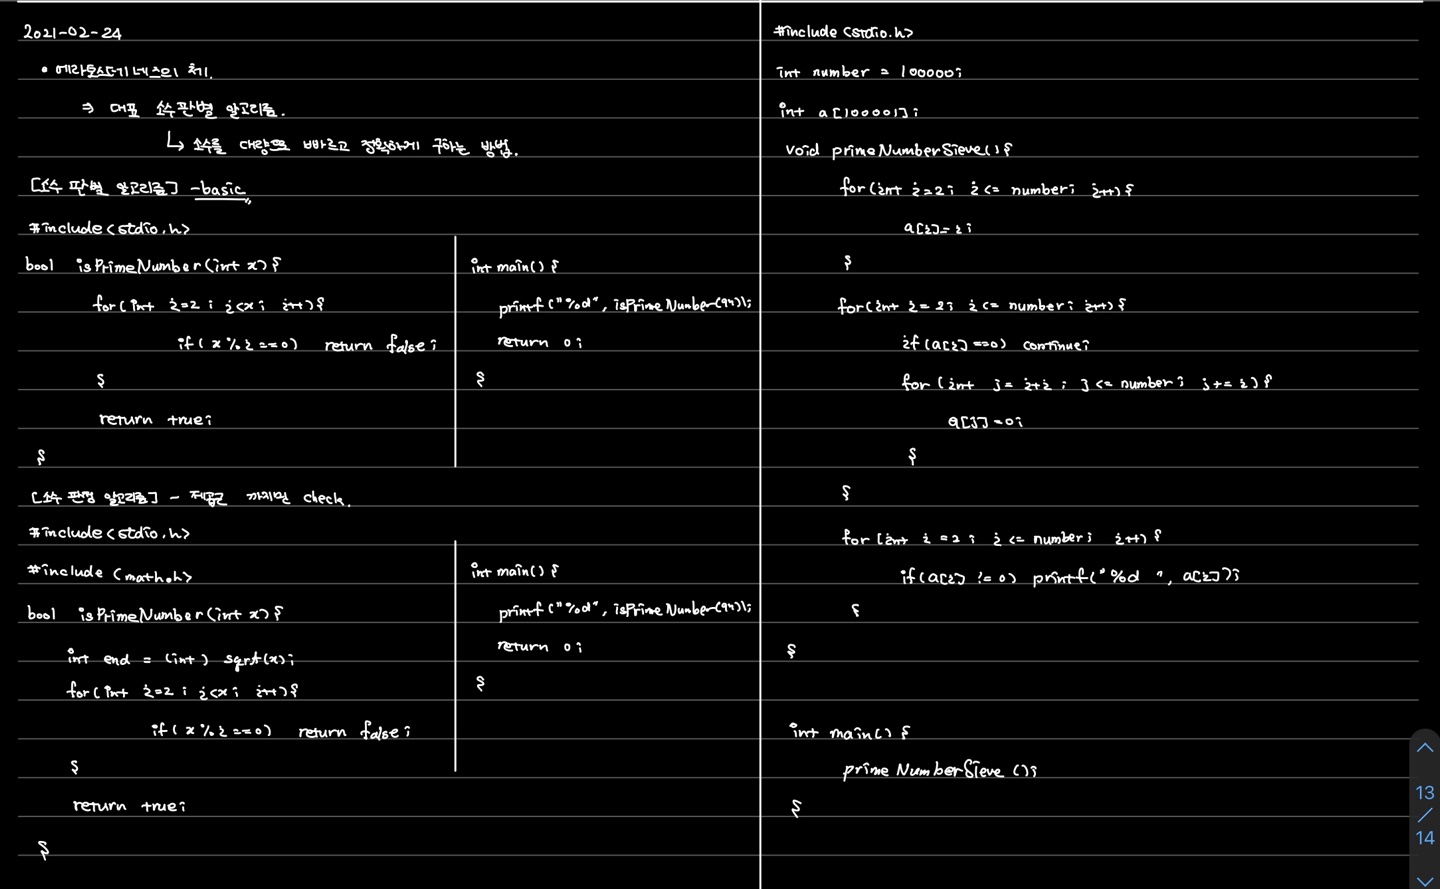 2021-02-24
• 에라토스테네스의 체.
⇒ 대표 소수 판별 알고리즘.
↳ 소수를 대량으로 빠르고 정확하게 구하는 방법.
[소수 판별 알고리즘] -basic
#include<stdio.h>
bool isPrimeNumber(int x){
for(int i=2; i<x; i++){
if(x%i==0) return false;
}
return true;
}
int main(){
printf("%d", isPrimeNumber(97));
return 0;
}
[소수 판별 알고리즘] - 제곱근 까지만 check.
#include<stdio.h>
#include <math.h>
bool isPrimeNumber(int x){
int end = (int) sqrt(x);
for(int i=2; i<x; i++){
if(x%i==0) return false;
}
return true;
}
int main(){
printf("%d", isPrimeNumber(97));
return 0;
}
#include<stdio.h>
int number = 100000;
int a[100001];
void primeNumberSieve(){
for(int i=2; i<= number; i++){
a[i]=i;
}
for(int i=2; i<= number; i++){
if(a[i]==0) continue;
for(int j= i+i; j<= number; j+=i){
a[j]=0;
}
}
for(int i=2; i<= number; i++){
if(a[i] != 0) printf("%d ", a[i]);
}
}
int main(){
primeNumberSieve();
}
13
/
14